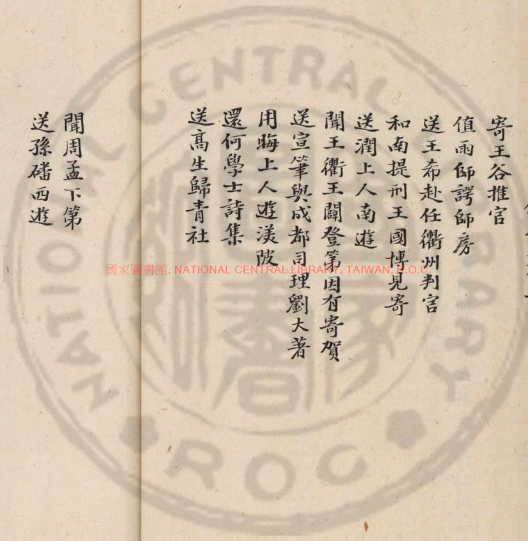 寄王谷推官
值雨師諤師房
送王希赴任衢州判官
和南提刑王國博見寄
送潤上人南遊
聞王衢王闢登第因有寄賀
送宣筆與成都司理劉大著
用晦上人遊渼陂
還何學士詩集
送高生歸青社
聞周孟下第
送孫磻西遊
國家圖書館, NATIONAL CENTRAL LIBRARY, TAIWAN, R.O.C.
NATIONAL CENTRAL LIBRARY
ROC